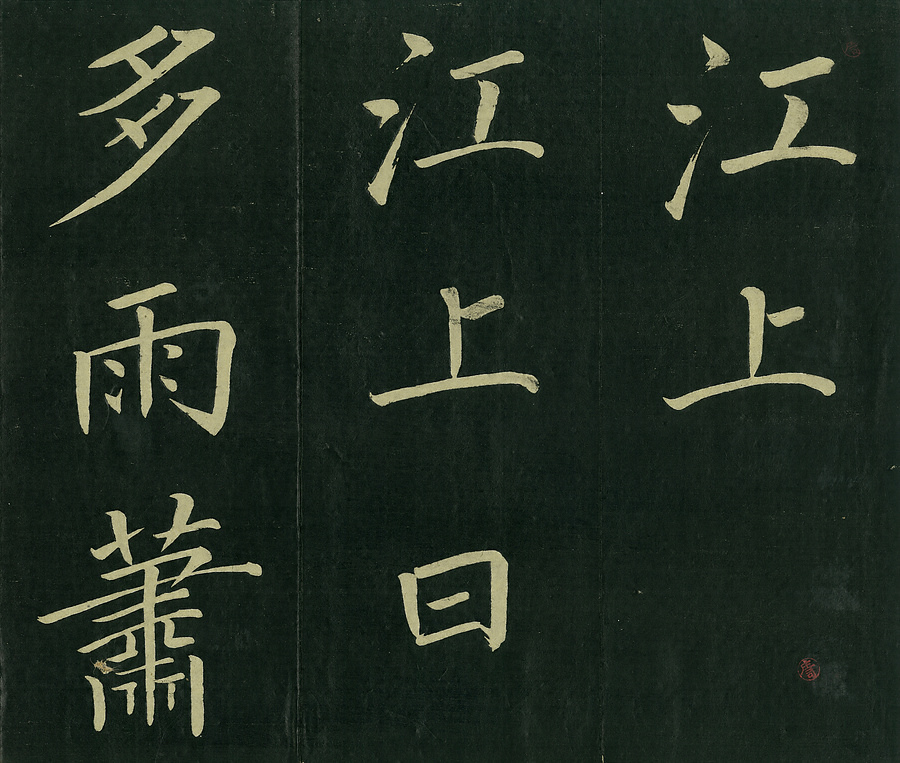 江上
江上日
多雨蕭